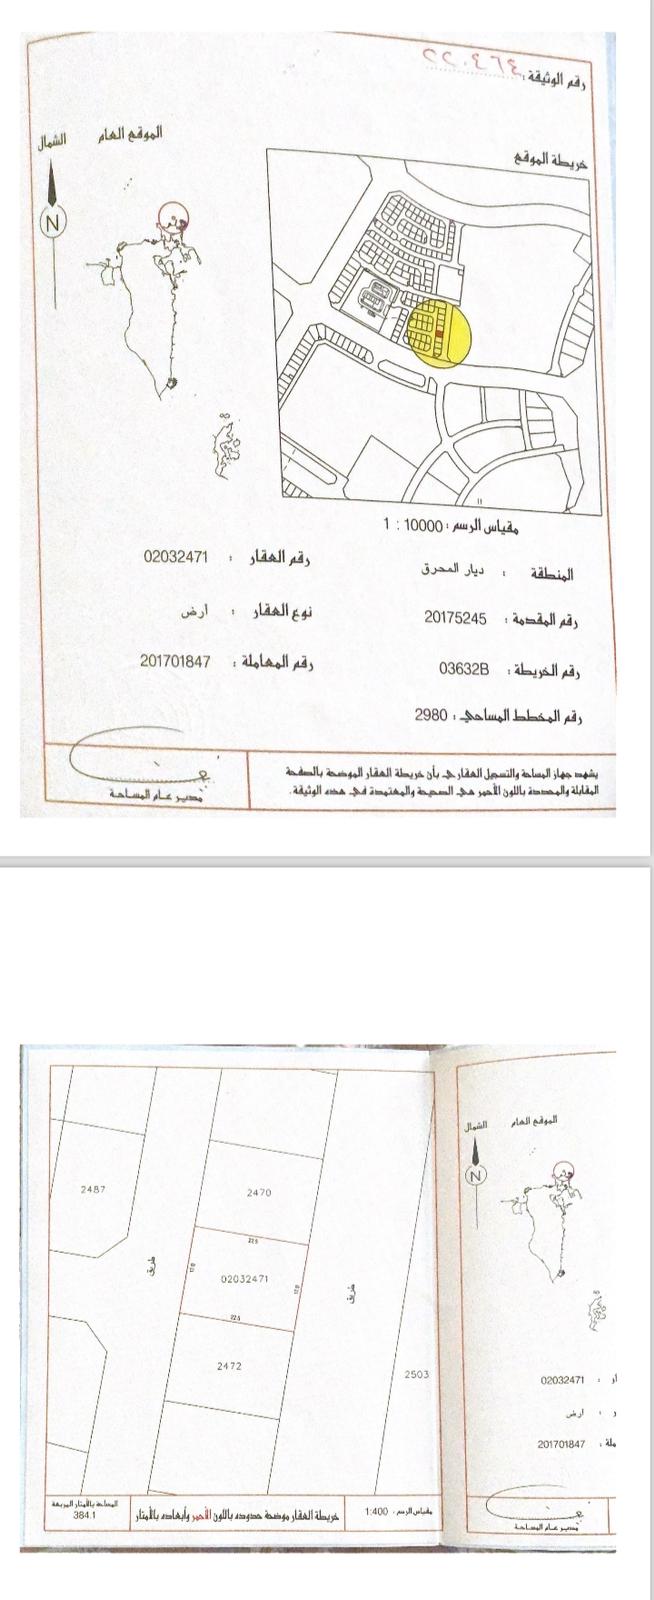 رقم الوثيقة :
الموقع العام
الشمال
N
خريطة الموقع
مقياس الرسم : 10000 : 1
رقم العقار : 02032471
المنطقة : ديار المحرق
نوع العقار : ارض
رقم المقدمة : 20175245
رقم المعاملة : 201701847
رقم الخريطة : 03632B
رقم المخطط المساحي : 2980
يشهد جهاز المساحة والتسجيل العقاري بأن خريطة العقار الموضحة بالصفحة
المقابلة والمحددة باللون الأحمر هي الصحيحة والمعتمدة في هذه الوثيقة .
مدير عام المساحة
الموقع العام
الشمال
N
2487
2470
22.5
02032471
17.0
17.0
22.5
طريق
طريق
2472
2503
02032471 :
ارض :
201701847 :
مدير عام المساحة
مقياس الرسم : 1:400
خريطة العقار موضحة حدوده باللون الأحمر وأبعاده بالأمتار
المساحة بالأمتار المربعة
384.1